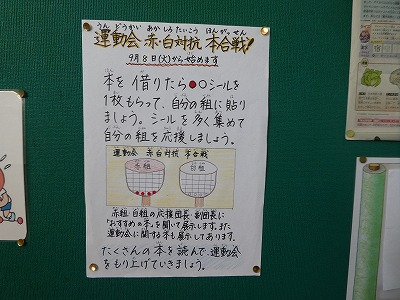 うん どうかい あか しろ たいこう ほん がっせん
運動会 赤・白対抗 本合戦!
9月8日(火)から始めます
本を借りたら●○シールを
1枚もらって、自分の組に貼り
ましょう。シールを多く集めて
自分の組を応援しましょう。
運動会 赤白対抗 本合戦
赤組 白組
赤組・白組の応援団長・副団長に
「おすすめの本」を聞いて展示します。また
運動会に関する本も展示してあります。
たくさんの本を読んで、運動会
をもり上げていきましょう。